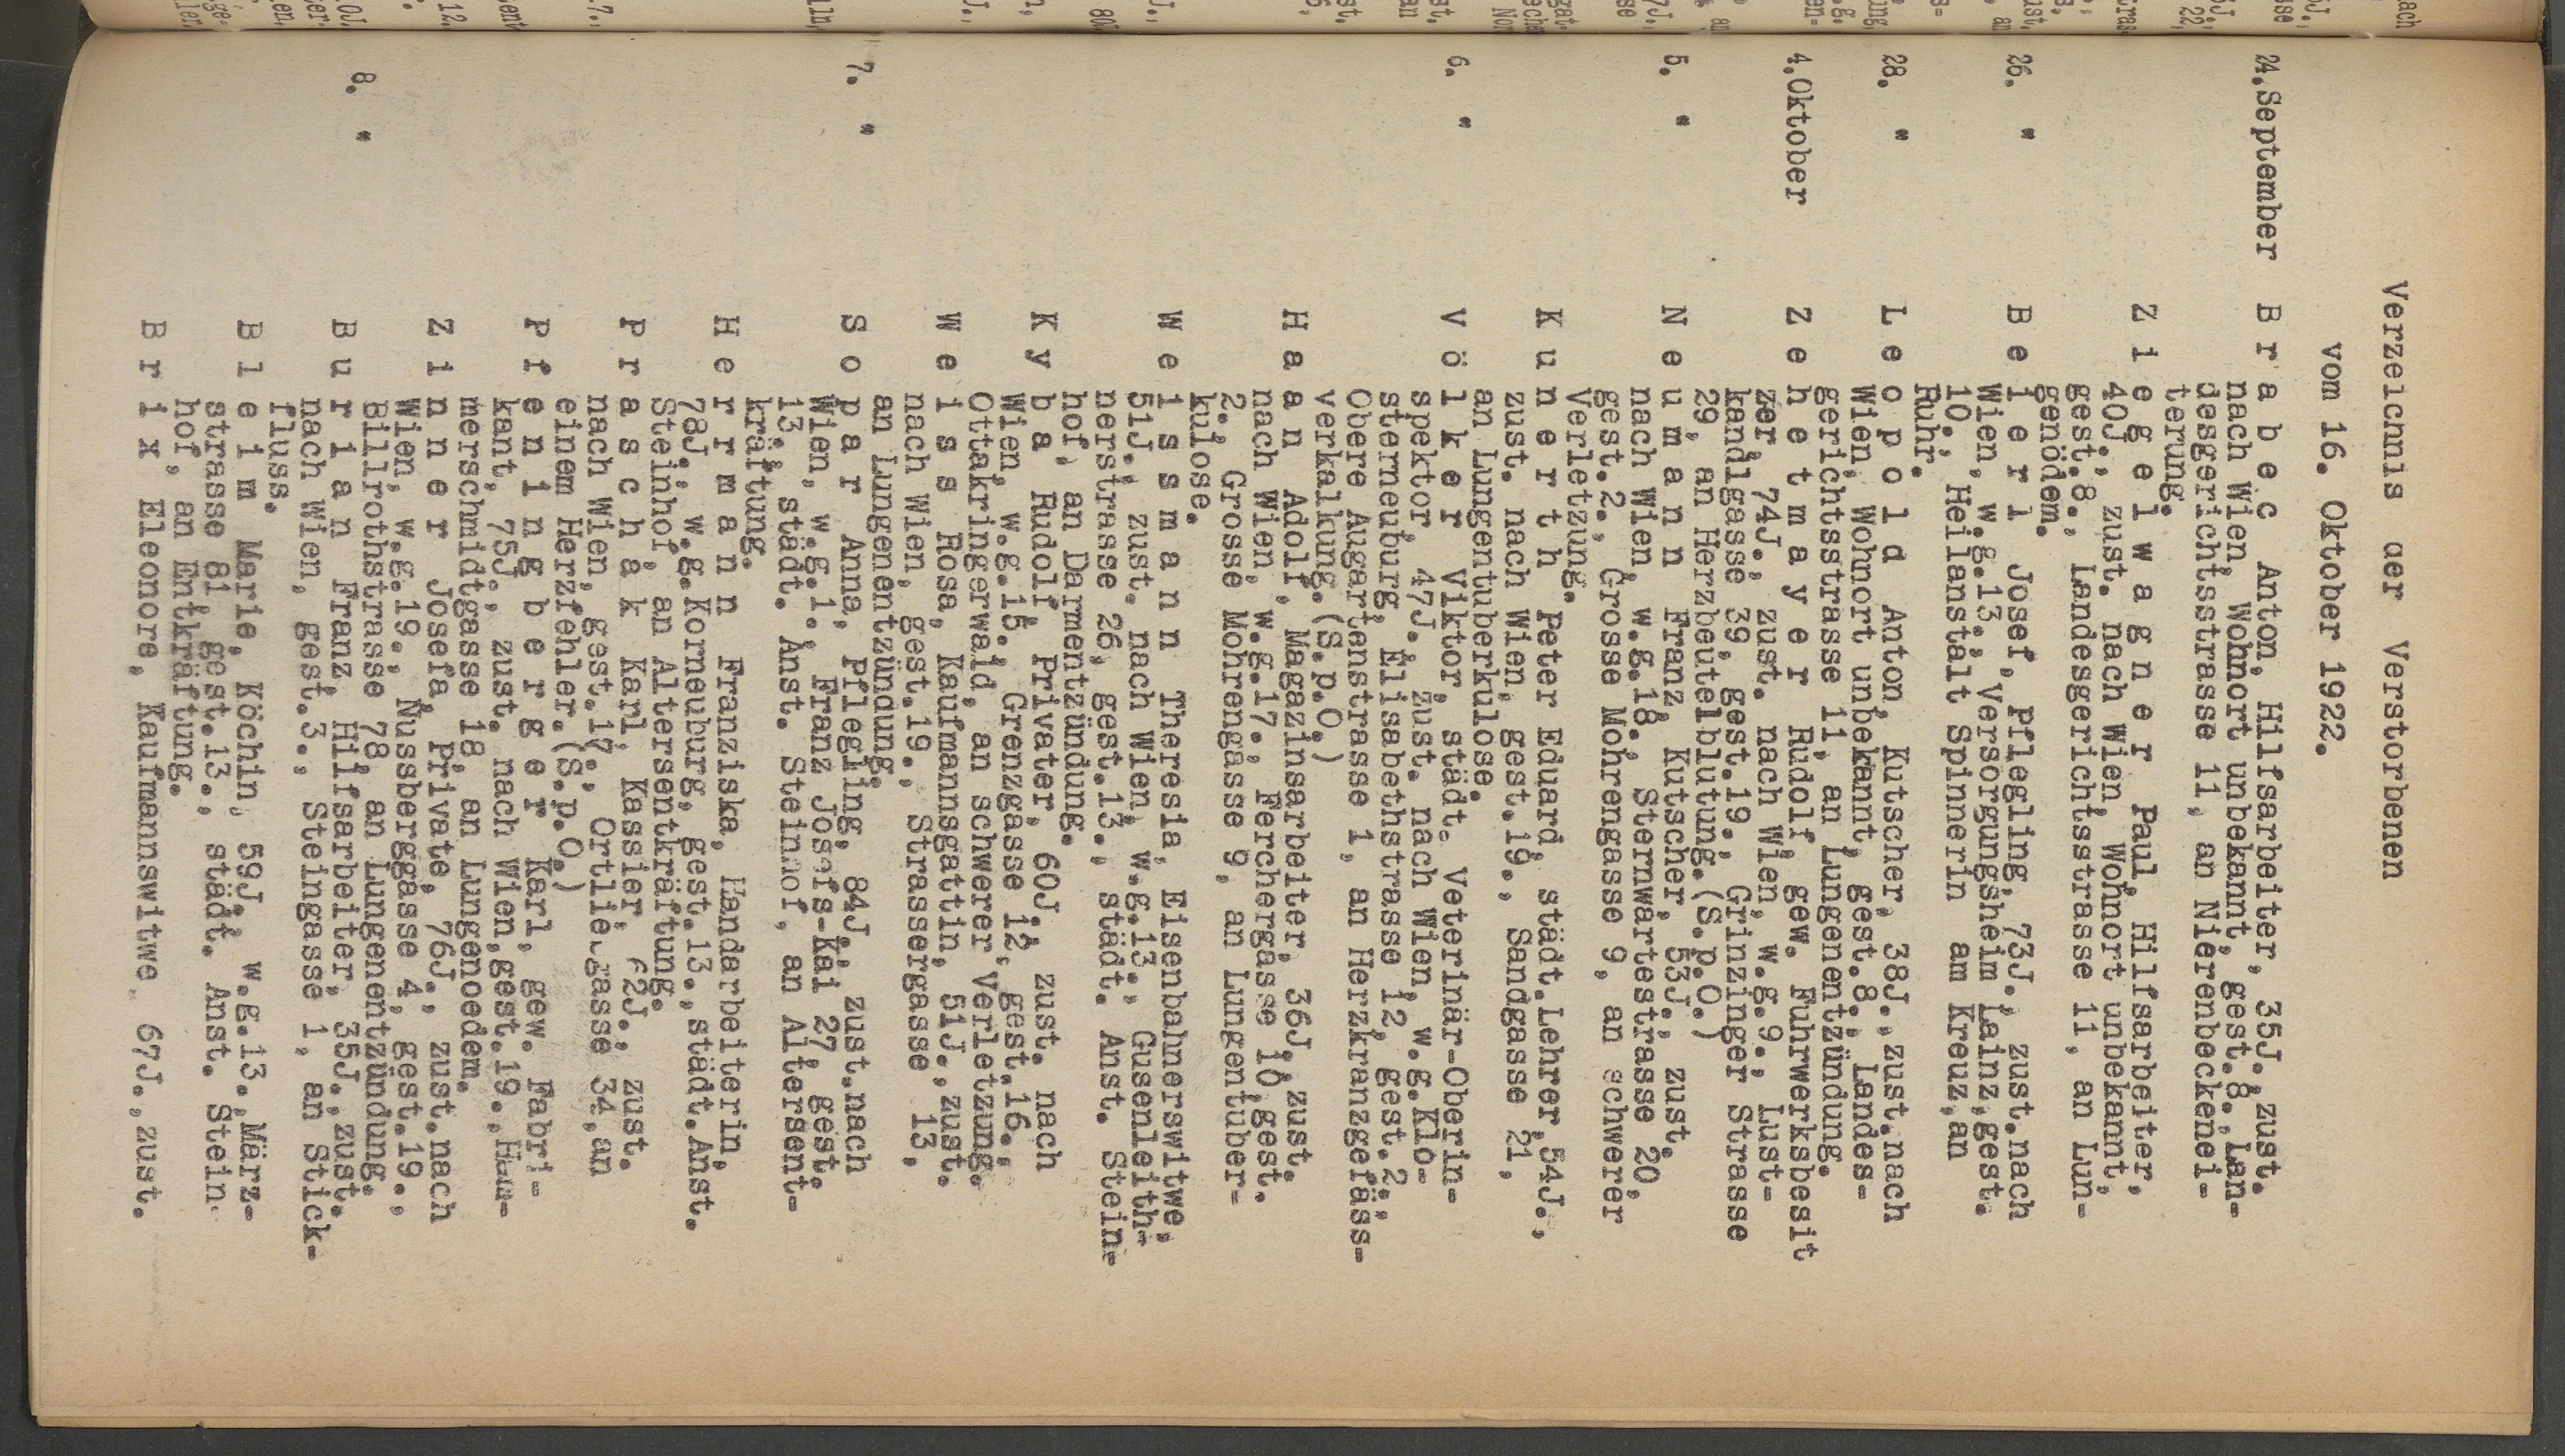 Verzeichnis der Verstorbenen
vom 16. Oktober 1922.
24.September B r a b e c Anton, Hilfsarbeiter, 35J.,zust.
nach Wien, Wohnort unbekannt, gest.8.,Lan-
desgerichtsstrasse 11, an Nierenbeckenei-
terung.
Z i e g e l w a g n e r Paul, Hilfsarbeiter,
40J., zust. nach Wien, Wohnort unbekannt,
gest.8., Landesgerichtsstrasse 11, an Lun-
genödem.
26. " B e i e r l Josef, Pflegling, 73J., zust.nach
Wien, w.g.13., Versorgungsheim Lainz,gest.
10., Heilanstalt Spinnerin am Kreuz,an
Ruhr.
28. " L e o p o l d Anton, Kutscher, 38J.,zust.nach
Wien, Wohnort unbekannt, gest.8., Landes-
gerichtsstrasse 11, an Lungenentzündung.
4.Oktober Z e h e t m a y e r Rudolf, gew. Fuhrwerksbesit
zer, 74J., zust. nach Wien, w.g.9., Lust-
kandlgasse 39, gest.19., Grinzinger Strasse
29, an Herzbeutelblutung.(S.p.O.)
5. " N e u m a n n Franz, Kutscher, 53J., zust.
nach Wien, w.g.18., Sternwartestrasse 20,
gest.2., Grosse Mohrengasse 9, an schwerer
Verletzung.
K u n e r t h Peter Eduard, städt.Lehrer,54J.,
zust. nach Wien, gest.19., Sandgasse 21,
an Lungentuberkulose.
6. " V ö l k e r Viktor, städt. Veterinär-Oberin-
spektor, 47J.,zust. nach Wien, w.g.Klo-
sterneuburg, Elisabethstrasse 12, gest.2.,
Obere Augartenstrasse 1, an Herzkranzgefäss-
verkalkung.(S.p.O.)
H a a n Adolf, Magazinsarbeiter, 36J.,zust.
nach Wien, w.g.17., Ferchergasse 10,gest.
2., Grosse Mohrengasse 9, an Lungentuber-
kulose.
W e i s s m a n n Theresia, Eisenbahnerswitwe,
51J., zust. nach Wien, w.g.13., Gusenleith-
nerstrasse 26, gest.13., städt. Anst. Stein-
hof, an Darmentzündung.
K y b a Rudolf, Privater, 60J., zust. nach
Wien, w.g.15. Grenzgasse 12, gest.16.,
Ottakringerwald, an schwerer Verletzung.
W e i s s Rosa, Kaufmannsgattin, 51J.,zust.
nach Wien, gest.19., Strassergasse 13,
an Lungenentzündung.
7. " S o p a r Anna, Pflegling, 84J., zust.nach
Wien, w.g.1., Franz Josefs-Kai 27, gest.
13., städt. Anst. Steinhof, an Altersent-
kräftung.
H e r r m a n n Franziska, Handarbeiterin,
78J., w.g.Korneuburg, gest.13.,städt.Anst.
Steinhof, an Altersentkräftung.
P r a s c h a k Karl, Kassier, 62J., zust.
nach Wien, gest.17., Ortliebgasse 34,an
einem Herzfehler.(S.p.O.)
P f e n i n g b e r g e r Karl, gew. Fabri-
kant, 75J., zust. nach Wien,gest.19.,Hum-
merschmidtgasse 18, an Lungenoedem.
Z i n n e r Josefa, Private, 76J., zust.nach
Wien, w.g.19., Nussberggasse 4, gest.19.,
Billrothstrasse 78, an Lungenentzündung.
8. " B u r i a n Franz, Hilfsarbeiter, 35J.,zust.
nach Wien, gest.3., Steingasse 1, an Stick-
fluss.
B l e i m Marie, Köchin, 59J., w.g.13.,März-
strasse 81, gest.13., städt. Anst. Stein
hof, an Entkräftung.
B r i x Eleonore, Kaufmannswitwe, 67J.,zust.